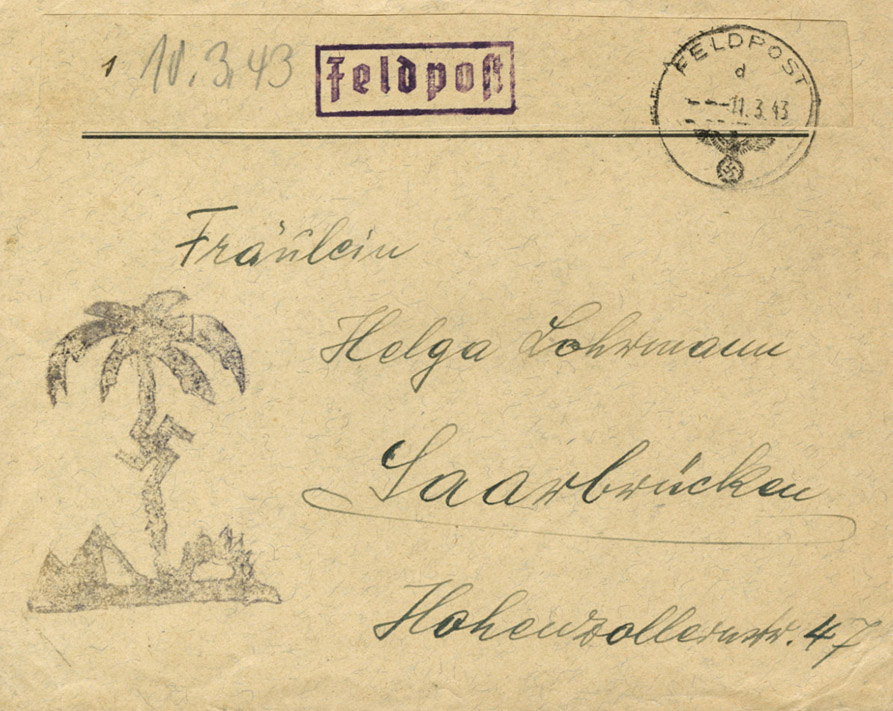 1 10.3.43
Feldpost
FELDPOST
d
11.3.43
Fräulein
Helga Lohrmann
Saarbrücken
Hohenzollernstr. 47